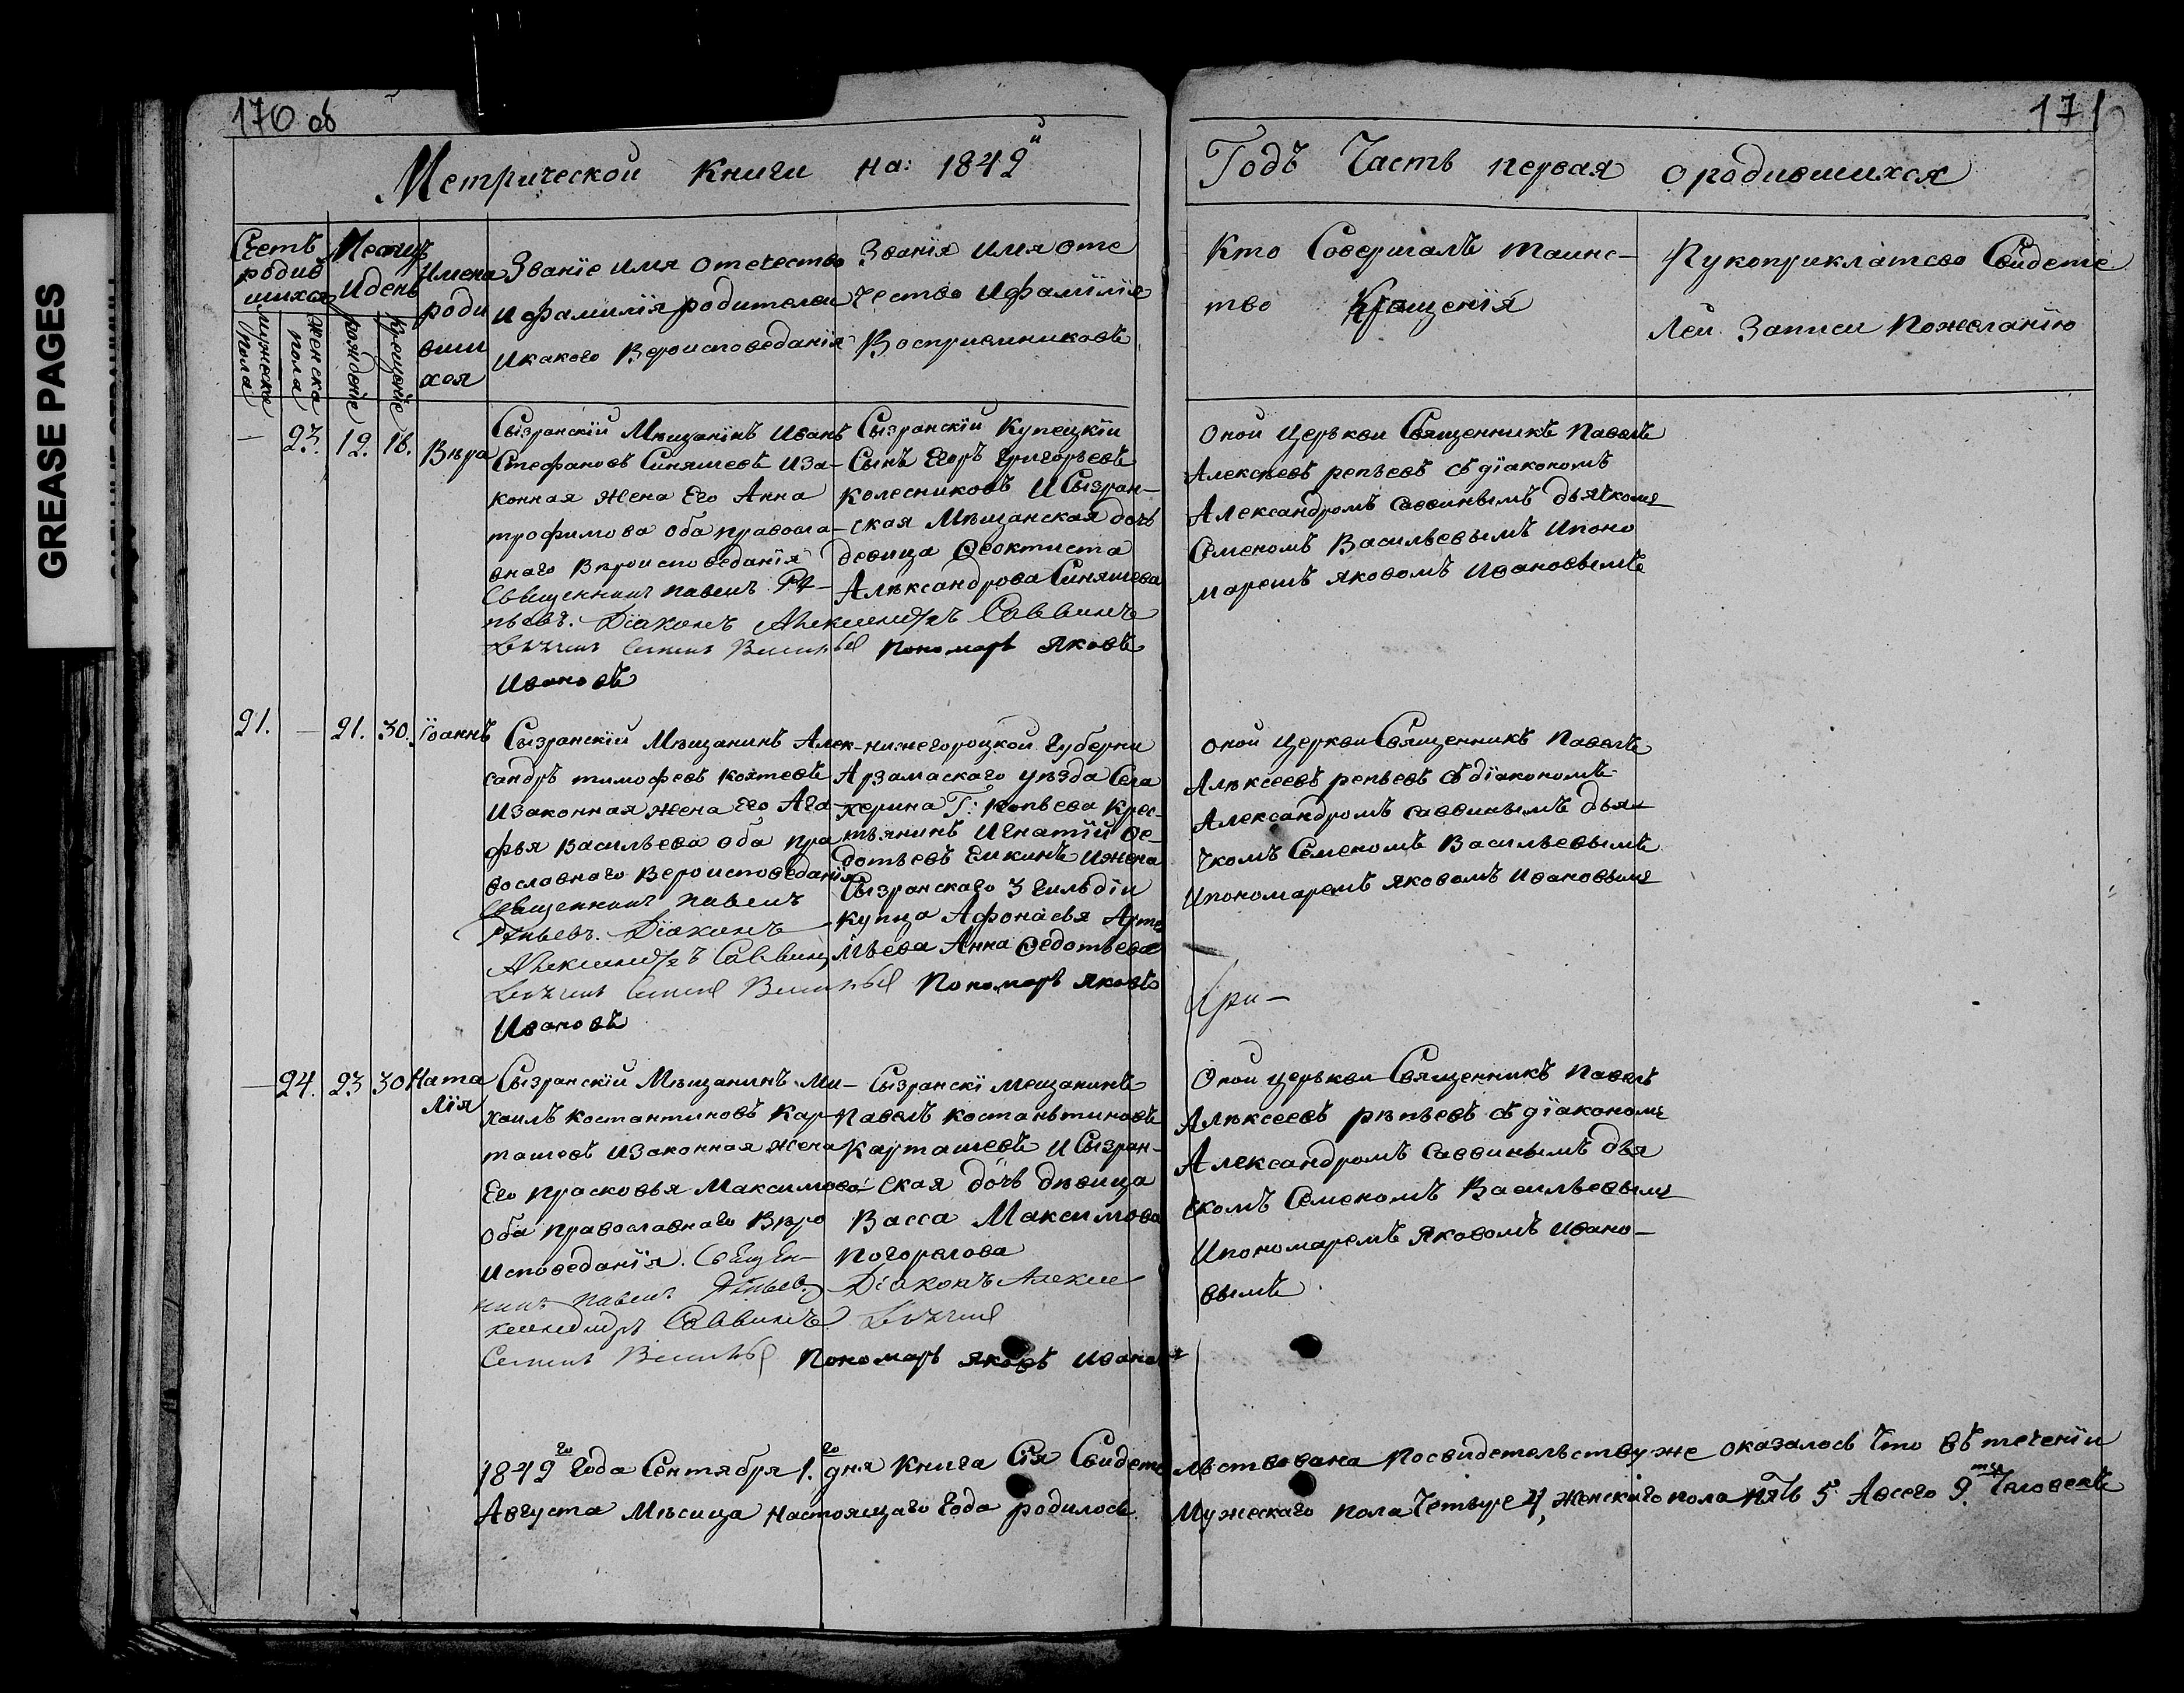 170 об
171
GREASE PAGES
Метрической Книги на: 1842й
Годъ Часть первая о родившихся
Счетъ родившихся
мужеска пола
женска пола
Месяцъ и день
рождение
крещение
Имена
роди
вши
хся
Званїе имя отечество
и фамилїя родителей
и какого вероисповеданїя
Званїя имя оте
чество и фамилїя
Восприемниковъ
Кто Совершалъ таинс-
тво Крещенїя
Рукоприклатсво Свидете
лей Записи Пожеланїю
— 23. 12. 16. Вѣра
Сызранскїй Мѣщанїнъ Иванъ
Стефановъ Синяшевъ и за-
конная жена Его Анна
трофимова оба правосла-
внаго Вѣроисповеданїя
Священникъ Павелъ Рѣ-
пьевъ. Дїаконъ Александръ Саввинъ
Дьячекъ Семенъ Васильев Пономарь Яковъ
Ивановъ
Сызранскїй Купецкїй
Сынъ Егоръ Григорьевъ
Колесниковъ и Сызран-
ская Мѣщанская дочь
девица Феоктиста
Алѣксандрова Синяшева
Оной Церькви Священникъ Павелъ
Алексѣевъ репьевъ съ дїакономъ
Александромъ Саввинымъ дьячкомъ
Семеномъ Васильевымъ и поно
маремъ Яковомъ Ивановымъ
21. — 21. 30. Їоаннъ
Сызранскїй Мѣщанинъ Алек-
сандръ тимофевъ Коптевъ
и Законная жена Его Ага
фья Васильева оба пра
вославнаго Вероисповеданїя
Священникъ Павелъ
Рѣпьевъ. Дїаконъ
Александръ Саввинъ
Дьячекъ Семенъ Васильев Пономарь Яковъ
Ивановъ
нижегороцкой Губерни
Арзамаскаго уѣзда Села
херина Г: Копьева Крес-
тьянинъ Игнатїй Фе-
дотьевъ Емкинъ и жена
Сызранскаго 3 гильдїи
купца Афонасья Арте
мьева Анна Федотьева
Оной Церкви Священникъ Павелъ
Алѣксеевъ репьевъ съ дїакономъ
Александромъ Саввинымъ дья-
чкомъ Семеномъ Васильевымъ
и пономаремъ Яковомъ Ивановымъ
При-
— 24. 23 30 Ната
лїя
Сызранскїй Мѣщанинъ Ми-
хаилъ Костантиновъ Кар-
ташовъ и Законная жена
Его прасковья Максимова
оба православнаго Вѣро
исповеданїя. Священ-
никъ Павелъ Рѣпьев. Дїаконъ Алекса
ксандръ Саввинъ Дьячекъ
Семенъ Васильев Пономарь Яковъ Иванов
Сызранскї мещанинъ
Павелъ Костаньтиновъ
Карташевъ и Сызран-
ская дочь дѣвица
Васса Максимова
Погорелова
Оной церькви Священникъ Павелъ
Алѣксеевъ рѣпьевъ съ дїакономъ
Александромъ Саввинымъ дья
чкомъ Семеномъ Васильевымъ
и пономаремъ Яковомъ Ивано-
вымъ
1842го Года Сентября 1.го дня Книга Сїя Свидетельствована По свидетельству же оказалось Что въ теченїи
Августа Мѣсица Настоящаго Года родилось Мужескаго пола Четыре 4, женскаго пола пять 5. А всего 9.ть Человекъ